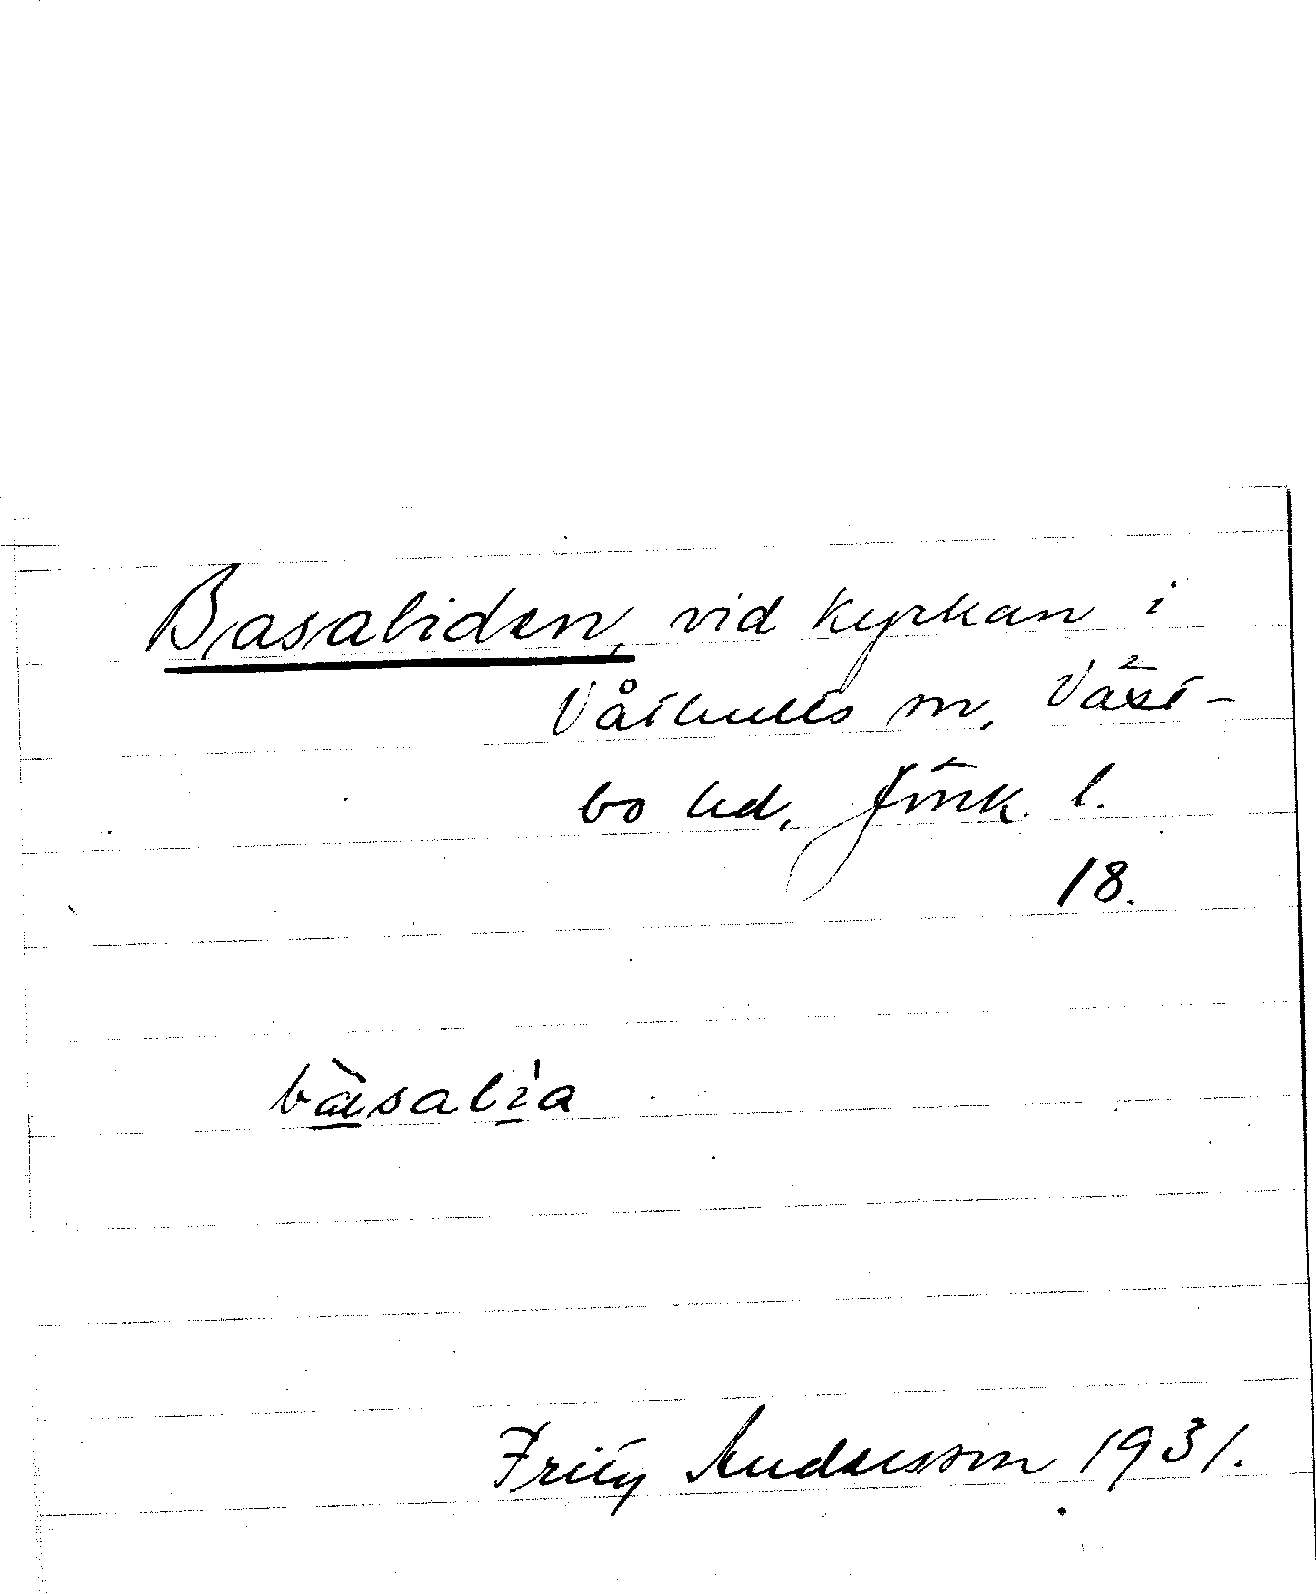 Basaliden, vid kyrkan i
Våthults sn, Väst-
bo hd, Jönk. l.
18.
bàsalìa
Fritz Andersson 1931.